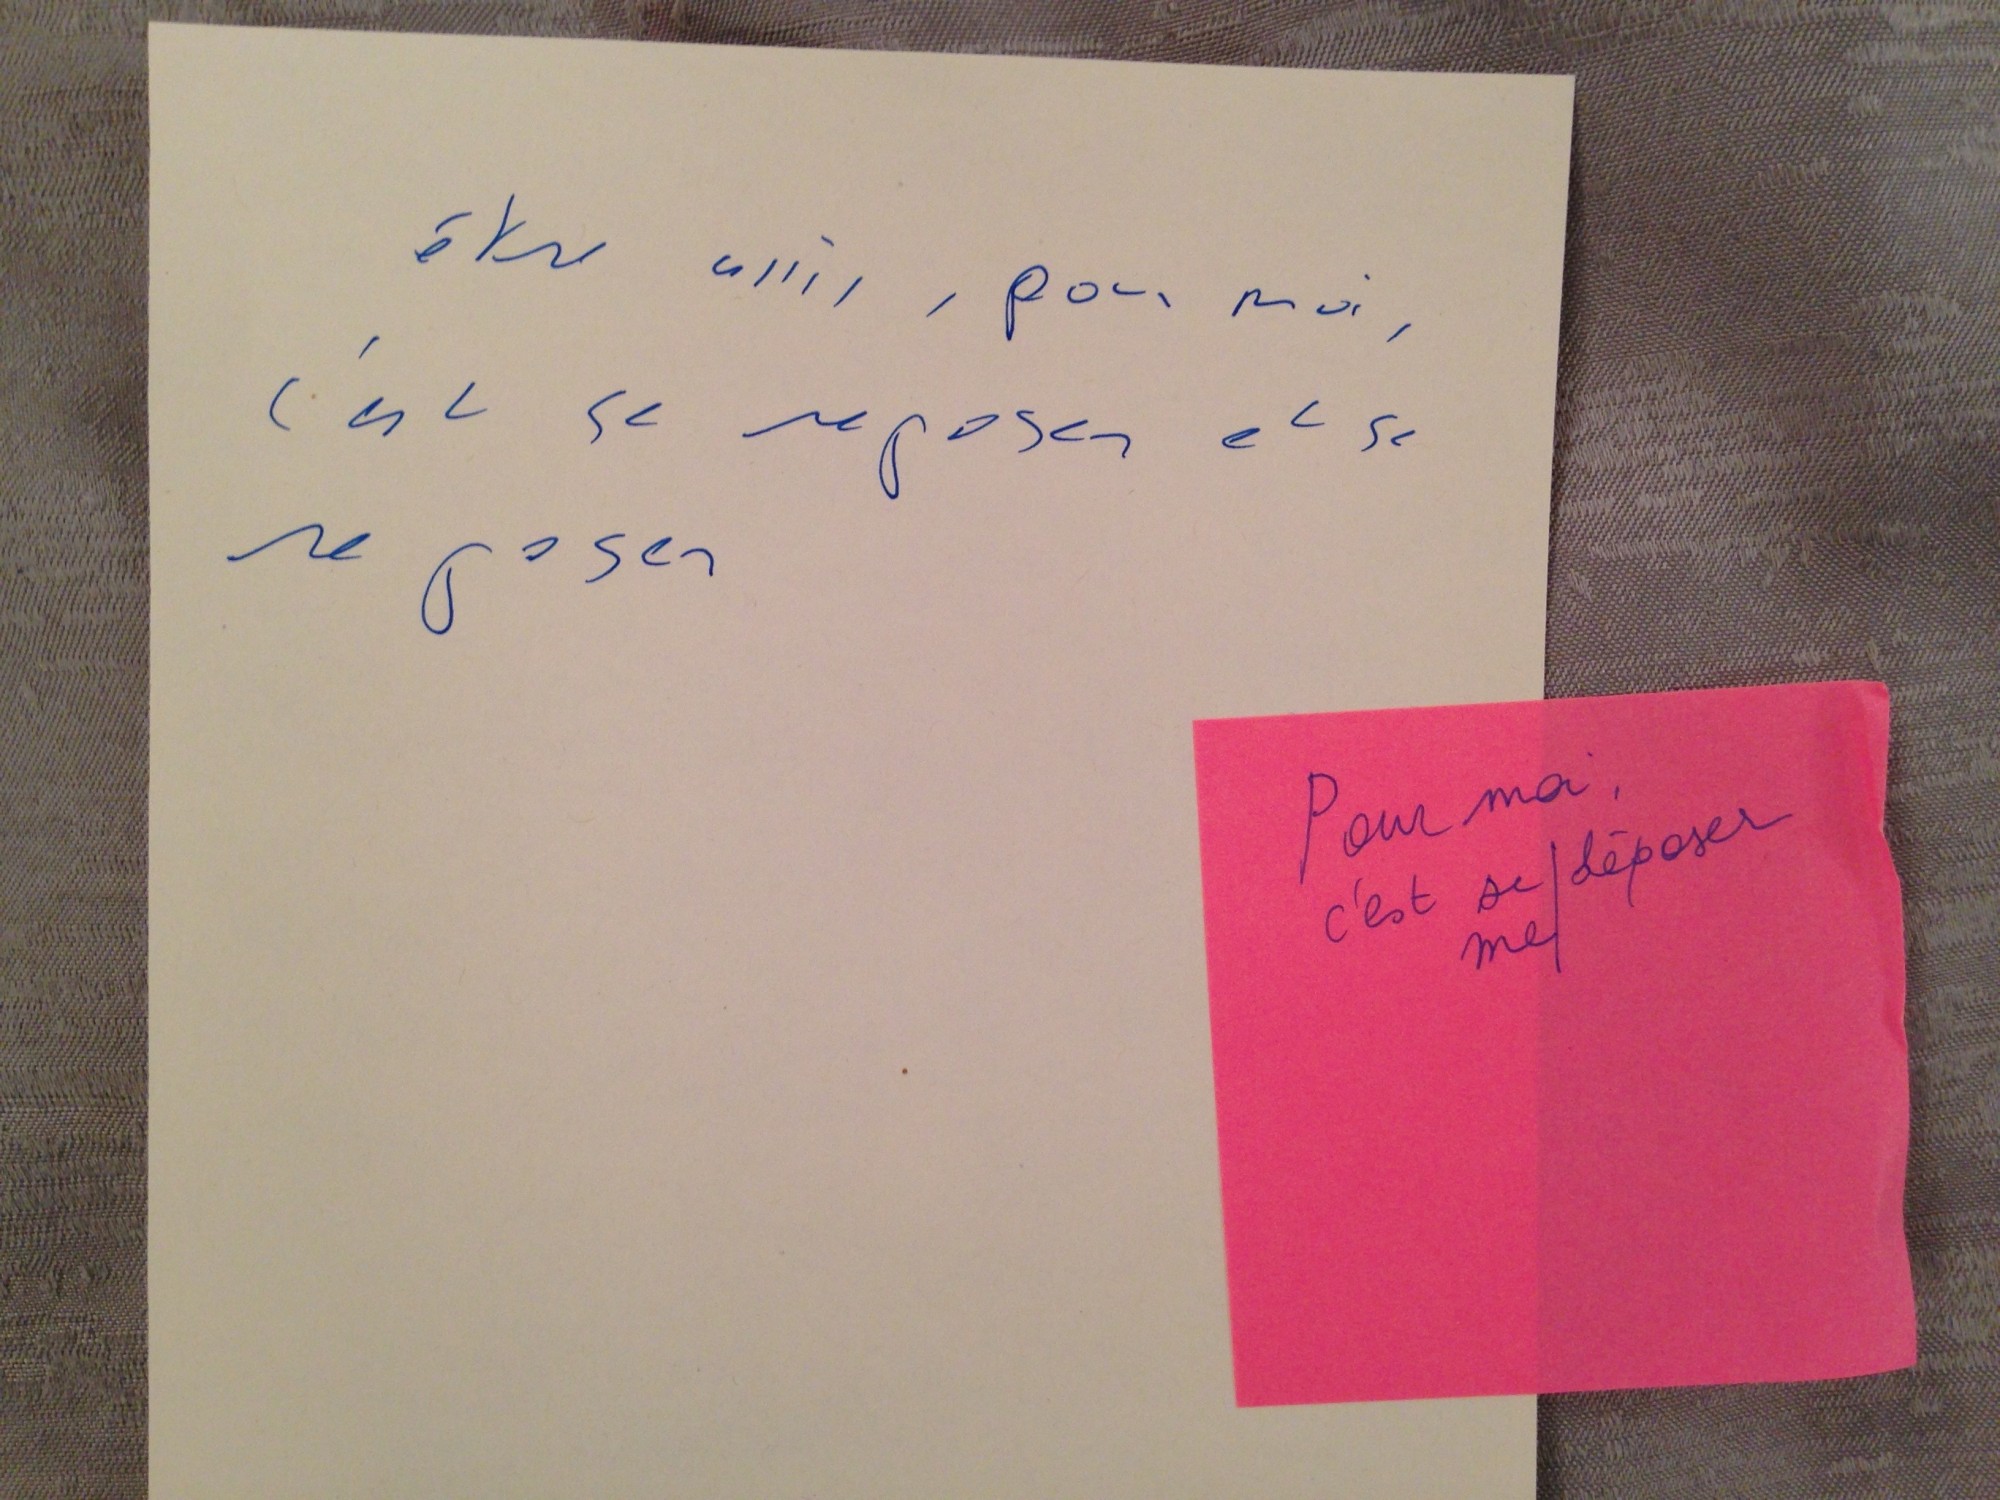 être assis, pour moi,
c'est se reposer et se
reposer
Pour moi,
c'est se/déposer
me/